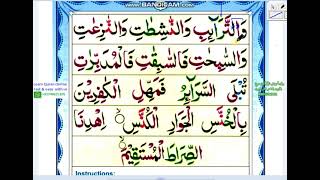 www.BANDICAM.com
وَالتَّرَآئِبِ وَالنّٰشِطٰتِ وَالنّٰزِعٰتِ
وَالسّٰبِحٰتِ فَالسّٰبِقٰتِ فَالْمُدَبِّرٰتِ
تُبْلَى السَّرَآئِرُ فَمَهِّلِ الْكٰفِرِيْنَ
بِالْخُنَّسِ الْجَوَارِ الْكُنَّسِ اِهْدِنَا
الصِّرَاطَ الْمُسْتَقِيْمَ
Instructions: